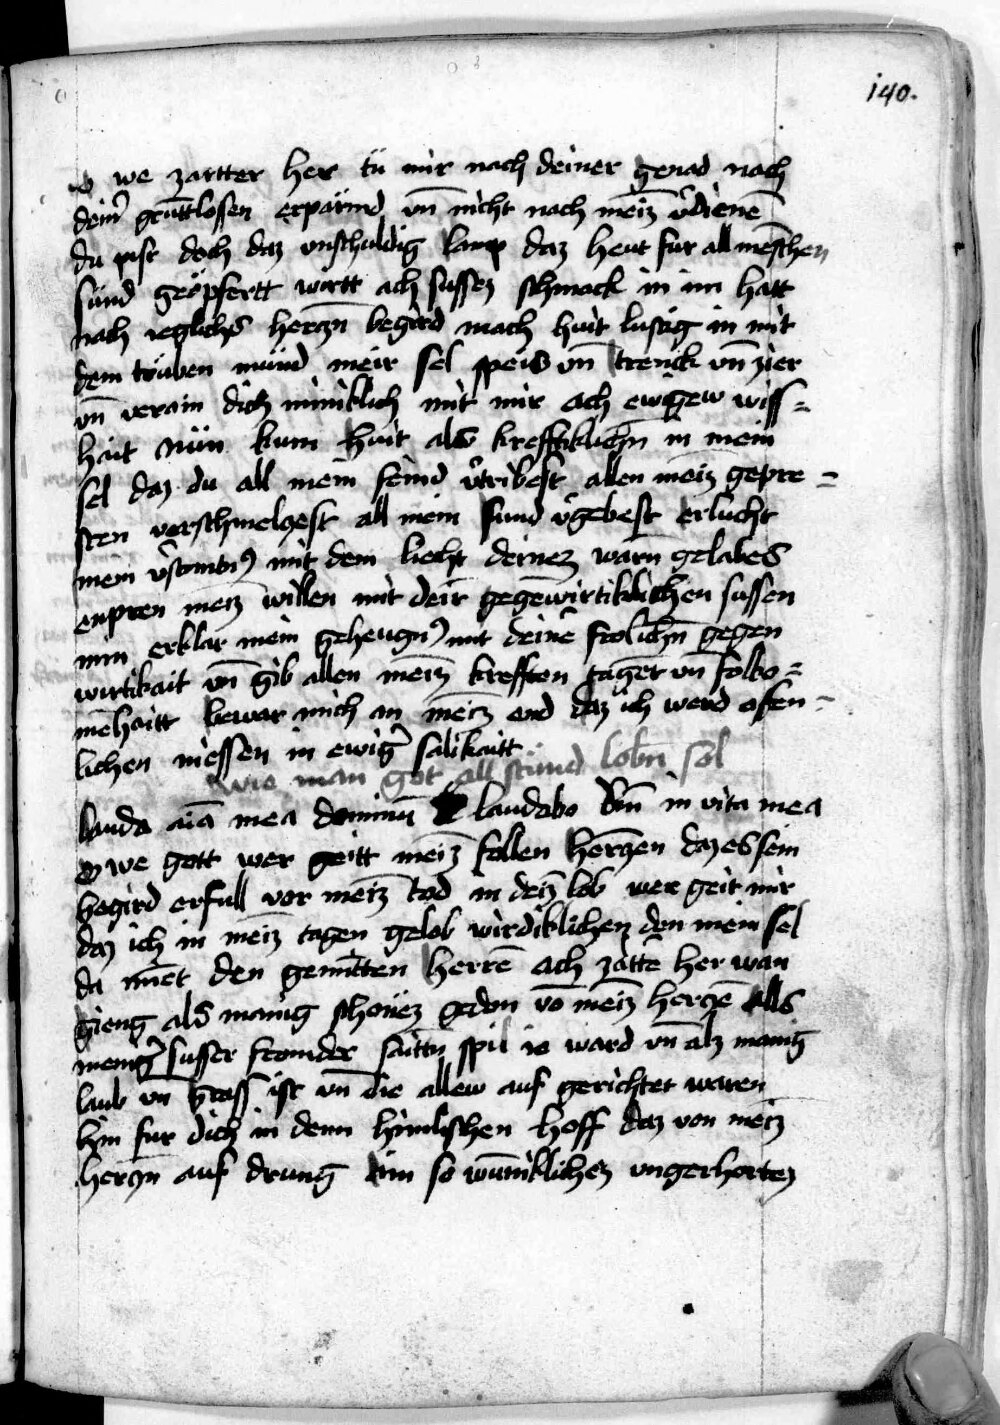 140.
O we zartter her tü mir nach deiner genad nach
dein̾ grüttlossen erpärmd vn̄ nicht nach meiz v̾dienē
du pist doch daz vnschuldig lamp daz heut fur all mēschen
sünd geöpfertt wirtt ach susser schmack in im hatt
nach yeglichs herczn̄ begird mach hüt lustig in mit
dem trüben münd meir sel speis vn̄ trenck vn̄ zier
vn̄ verain dich miniklich mit mir ach ewigew wiss=
hait nün kum hüt als krefftiklichn̄ in mein
sel daz du all mein feind v̾tribest allen meiz gepre=
sten verschmelczest all mein sund v̾gebest erlücht
mein v̾stentn᾽ mit dem liecht deinez warn̄ gelabes
enpren meiz willen mit deir gegēwirtiklichen sussen
min erklar mein geheugn᾽ mit deinē frölichn̄ gegen
wirtikait vn̄ gib allen meiz krefften tugēt vn̄ folko=
mēhaitt bewar mich an meiz end daz ich werd ofen=
lichen niessen in ewig̾ sälikaitt
wie man got all stünd lobn̄ sol
Lauda aīa mea dominū laudabo dn̄m in vita mea
O we gott wer geitt meiz follen herczen daz es sein
begird erfull vor meiz tod in deiz lob wer geit mir
daz ich in meiz tagen gelob wirdiklichen den mein sel
da miēt den gemītten herrē ach zatte her wan
gieng als manig schönez gedön vō meiz herczē alls
menig̾ susser fromder saittn̄ spil ie ward vn̄ alz manig
laub vn̄ grass ist vn̄ die allew auf gerichtet waren
hin fur dich in dem himlischen hoff daz von meiz
herczn̄ auf drung ein so wūniklichez vngerhortez